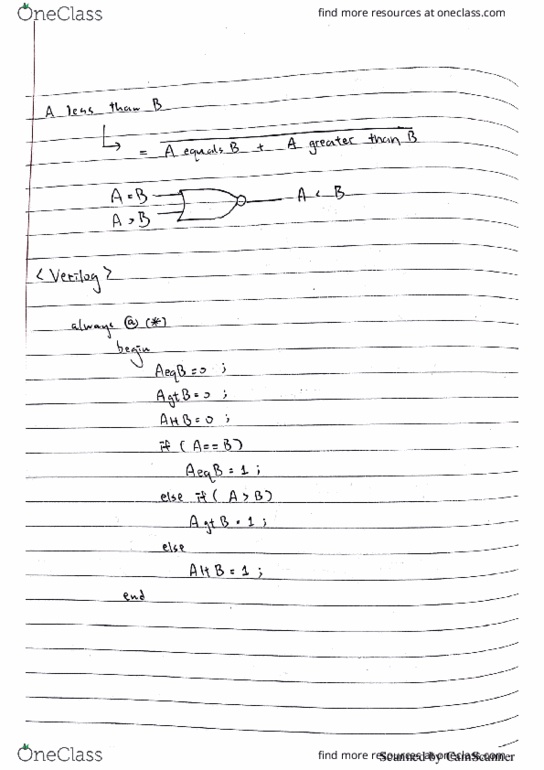 OneClass
find more resources at oneclass.com
A less than B
= A equals B + A greater than B
A = B
A < B
A > B
<Verilog>
always @ (*)
begin
AeqB = 0 ;
AgtB = 0 ;
AltB = 0 ;
if ( A == B)
AeqB = 1 ;
else if ( A > B)
AgtB = 1 ;
else
AltB = 1 ;
end
OneClass
find more resources at oneclass.com
Scanned by CamScanner